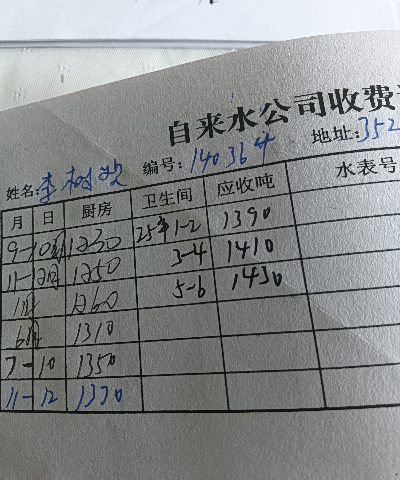 自来水公司收费
姓名:李树 编号:140364 地址:352
月 日 厨房 卫生间 应收吨 水表号
9-10月 1230 25年1-2 1390
11-12月 1250 3-4 1410
1月 1260 5-6 1430
6月 1310
7-10 1350
11-12 1370